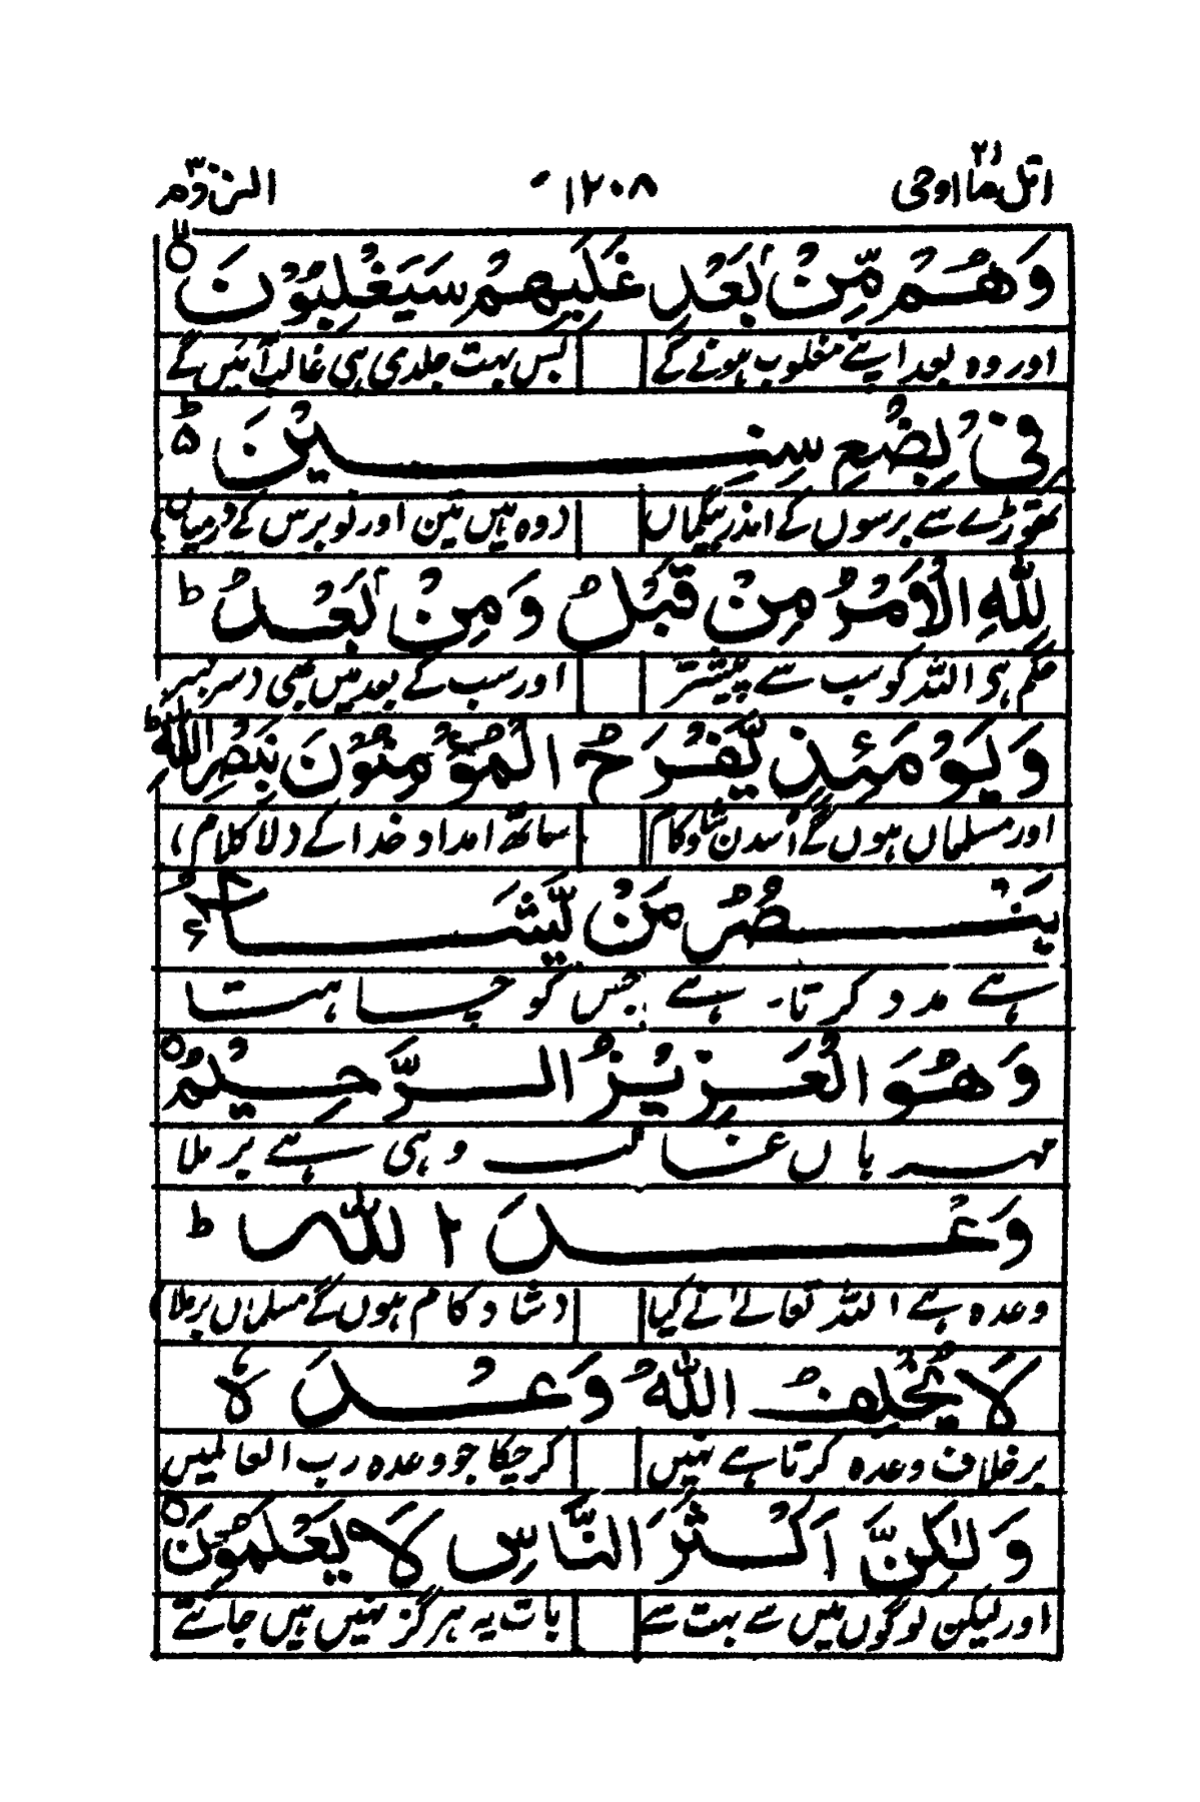 اتل ما اوحی ۲۱ ۱۲۰۸ الروم ۳۰
وَهُمْ مِّنْۢ بَعْدِ غَلَبِهِمْ سَيَغْلِبُوْنَ
اور وہ بعد اپنے مغلوب ہونے کے بس بہت جلدی ہی غالب آئیں گے
فِیْ بِضْعِ سِنِيْنَ ط ۵
تھوڑے سے برسوں کے اندر بیگماں (وہ ہیں تین اور نو برس کے درمیاں)
لِلّٰهِ الْاَمْرُ مِنْ قَبْلُ وَمِنْۢ بَعْدُ ط
حکم ہی اللہ کو سب سے پیشتر اور سب کے بعد میں بھی (سر بسر
وَيَوْمَئِذٍ يَّفْرَحُ الْمُؤْمِنُوْنَ بِنَصْرِ اللّٰهِ ط
اور مسلماں ہوں گے اُسدن شاد کام ساتھ امداد خدا کے (لا کلام)
يَنْصُرُ مَنْ يَّشَآءُ
ہے مدد کرتا۔ ہے جس کو چاہتا
وَهُوَ الْعَزِيْزُ الرَّحِيْمُ
مہرباں غالب وہی ہے بر ملا
وَعْدَ اللّٰهِ ط
وعدہ ہے اللہ تعالےٰ نے کیا (شاد کام ہوں گے مسلماں برملا)
لَا يُخْلِفُ اللّٰهُ وَعْدَهٗ
برخلاف وعدہ کرتا ہے نہیں کر چکا جو وعدہ رب العالمیں
وَلٰكِنَّ اَكْثَرَ النَّاسِ لَا يَعْلَمُوْنَ
اور لیکن لوگوں میں سے بہت سے بات یہ ہرگز نہیں ہیں جانتے